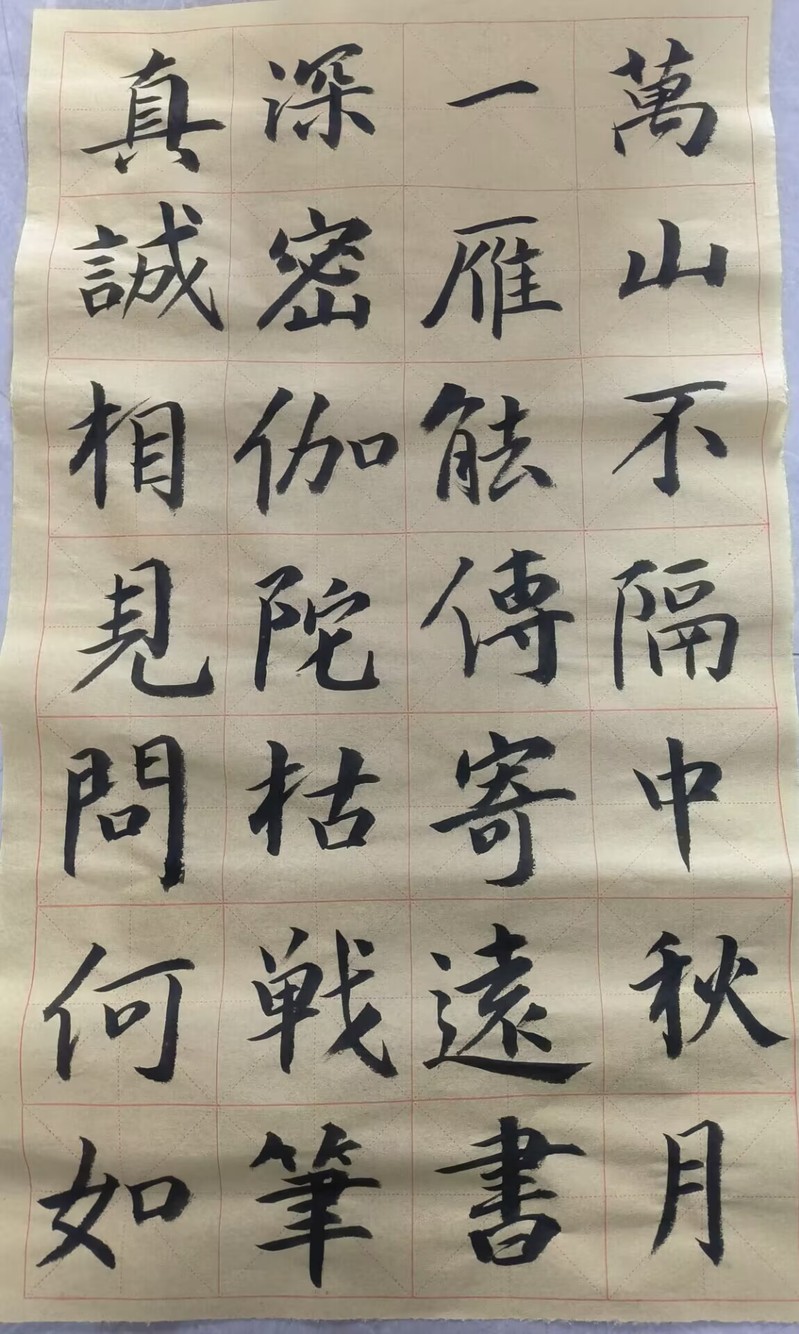 萬山不隔中秋月
一雁能傳寄遠書
深密伽陀枯戰筆
真誠相見問何如